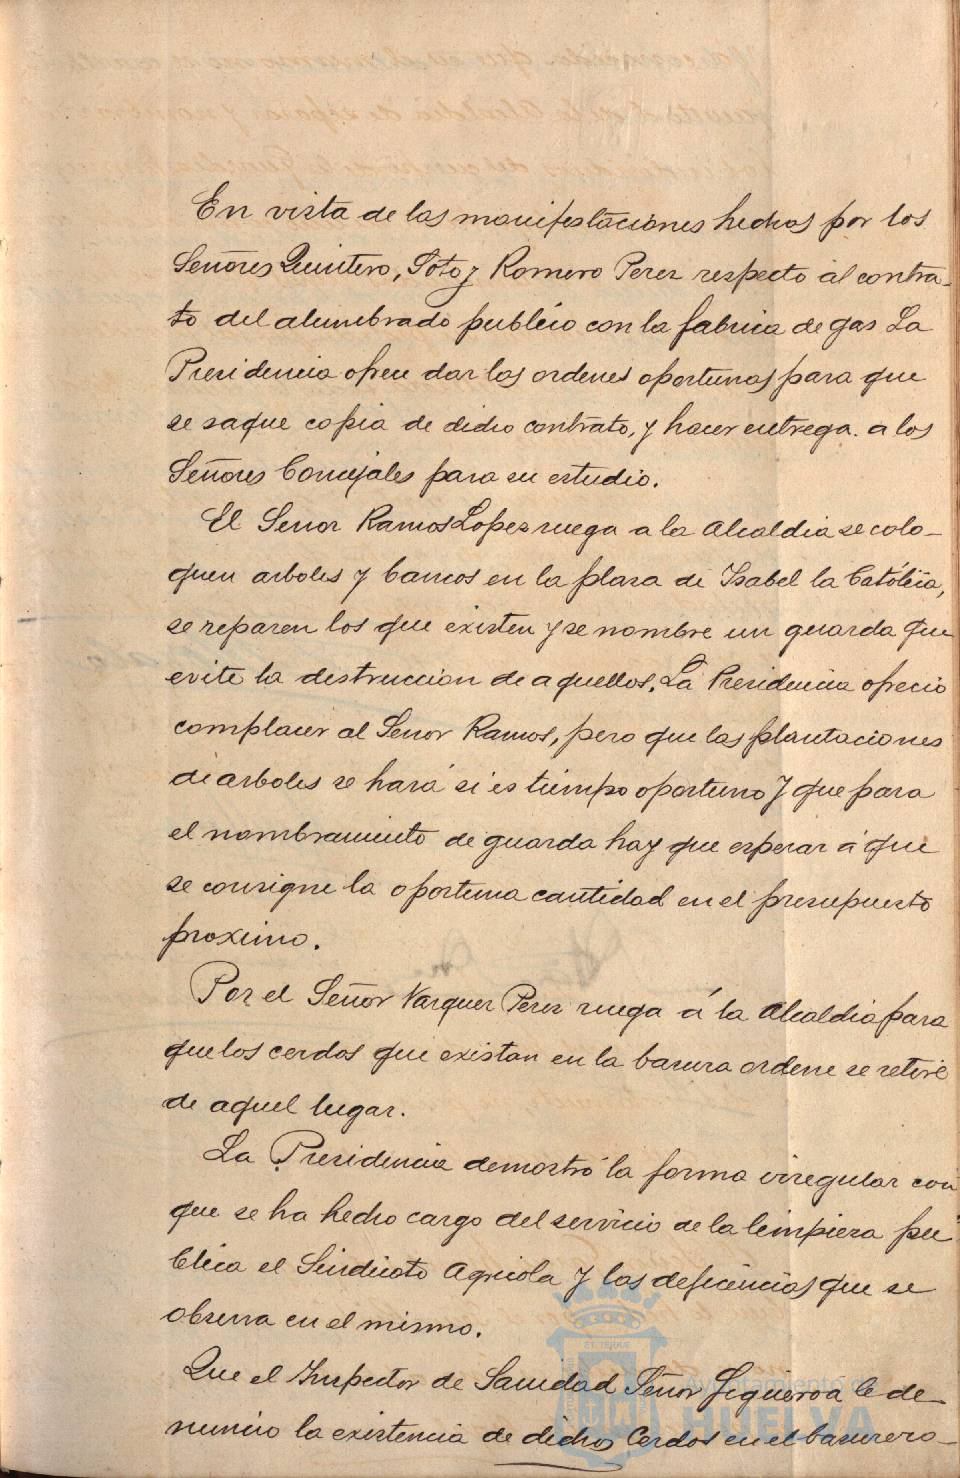 En vista de las manifestaciones hechas por los
Señores Quintero, Soto y Romero Perez respecto al contra-
to del alumbrado publico con la fabrica de gas La
Presidencia ofrece dar las ordenes oportunas para que
se saque copia de dicho contrato, y hacer entrega. a los
Señores Concejales para su estudio.
El Señor Ramos Lopez ruega a la Alcaldia se colo-
quen arboles y bancos en la plaza de Isabel la Católica,
se reparen los que existen y se nombre un guarda que
evite la destruccion de aquellos. La Presidencia ofrecio
complacer al Señor Ramos, pero que las plantaciones
de arboles se hará si es tiempo oportuno y que para
el nombramiento de guarda hay que esperar á que
se consigne la oportuna cantidad en el presupuesto
proximo.
Por el Señor Vazquez Perez ruega á la Alcaldia para
que los cerdos que existan en la basura ordene se retire
de aquel lugar.
La Presidencia demostró la forma irregular con
que se ha hecho cargo del servicio de la limpieza pu
blica el Sindicato Agricola y las deficiencias que se
observa en el mismo.
Que el Inspector de Sanidad Señor Figueroa le de-
nuncio la existencia de dichos Cerdos en el basurero-
Ayuntamiento de
HUELVA